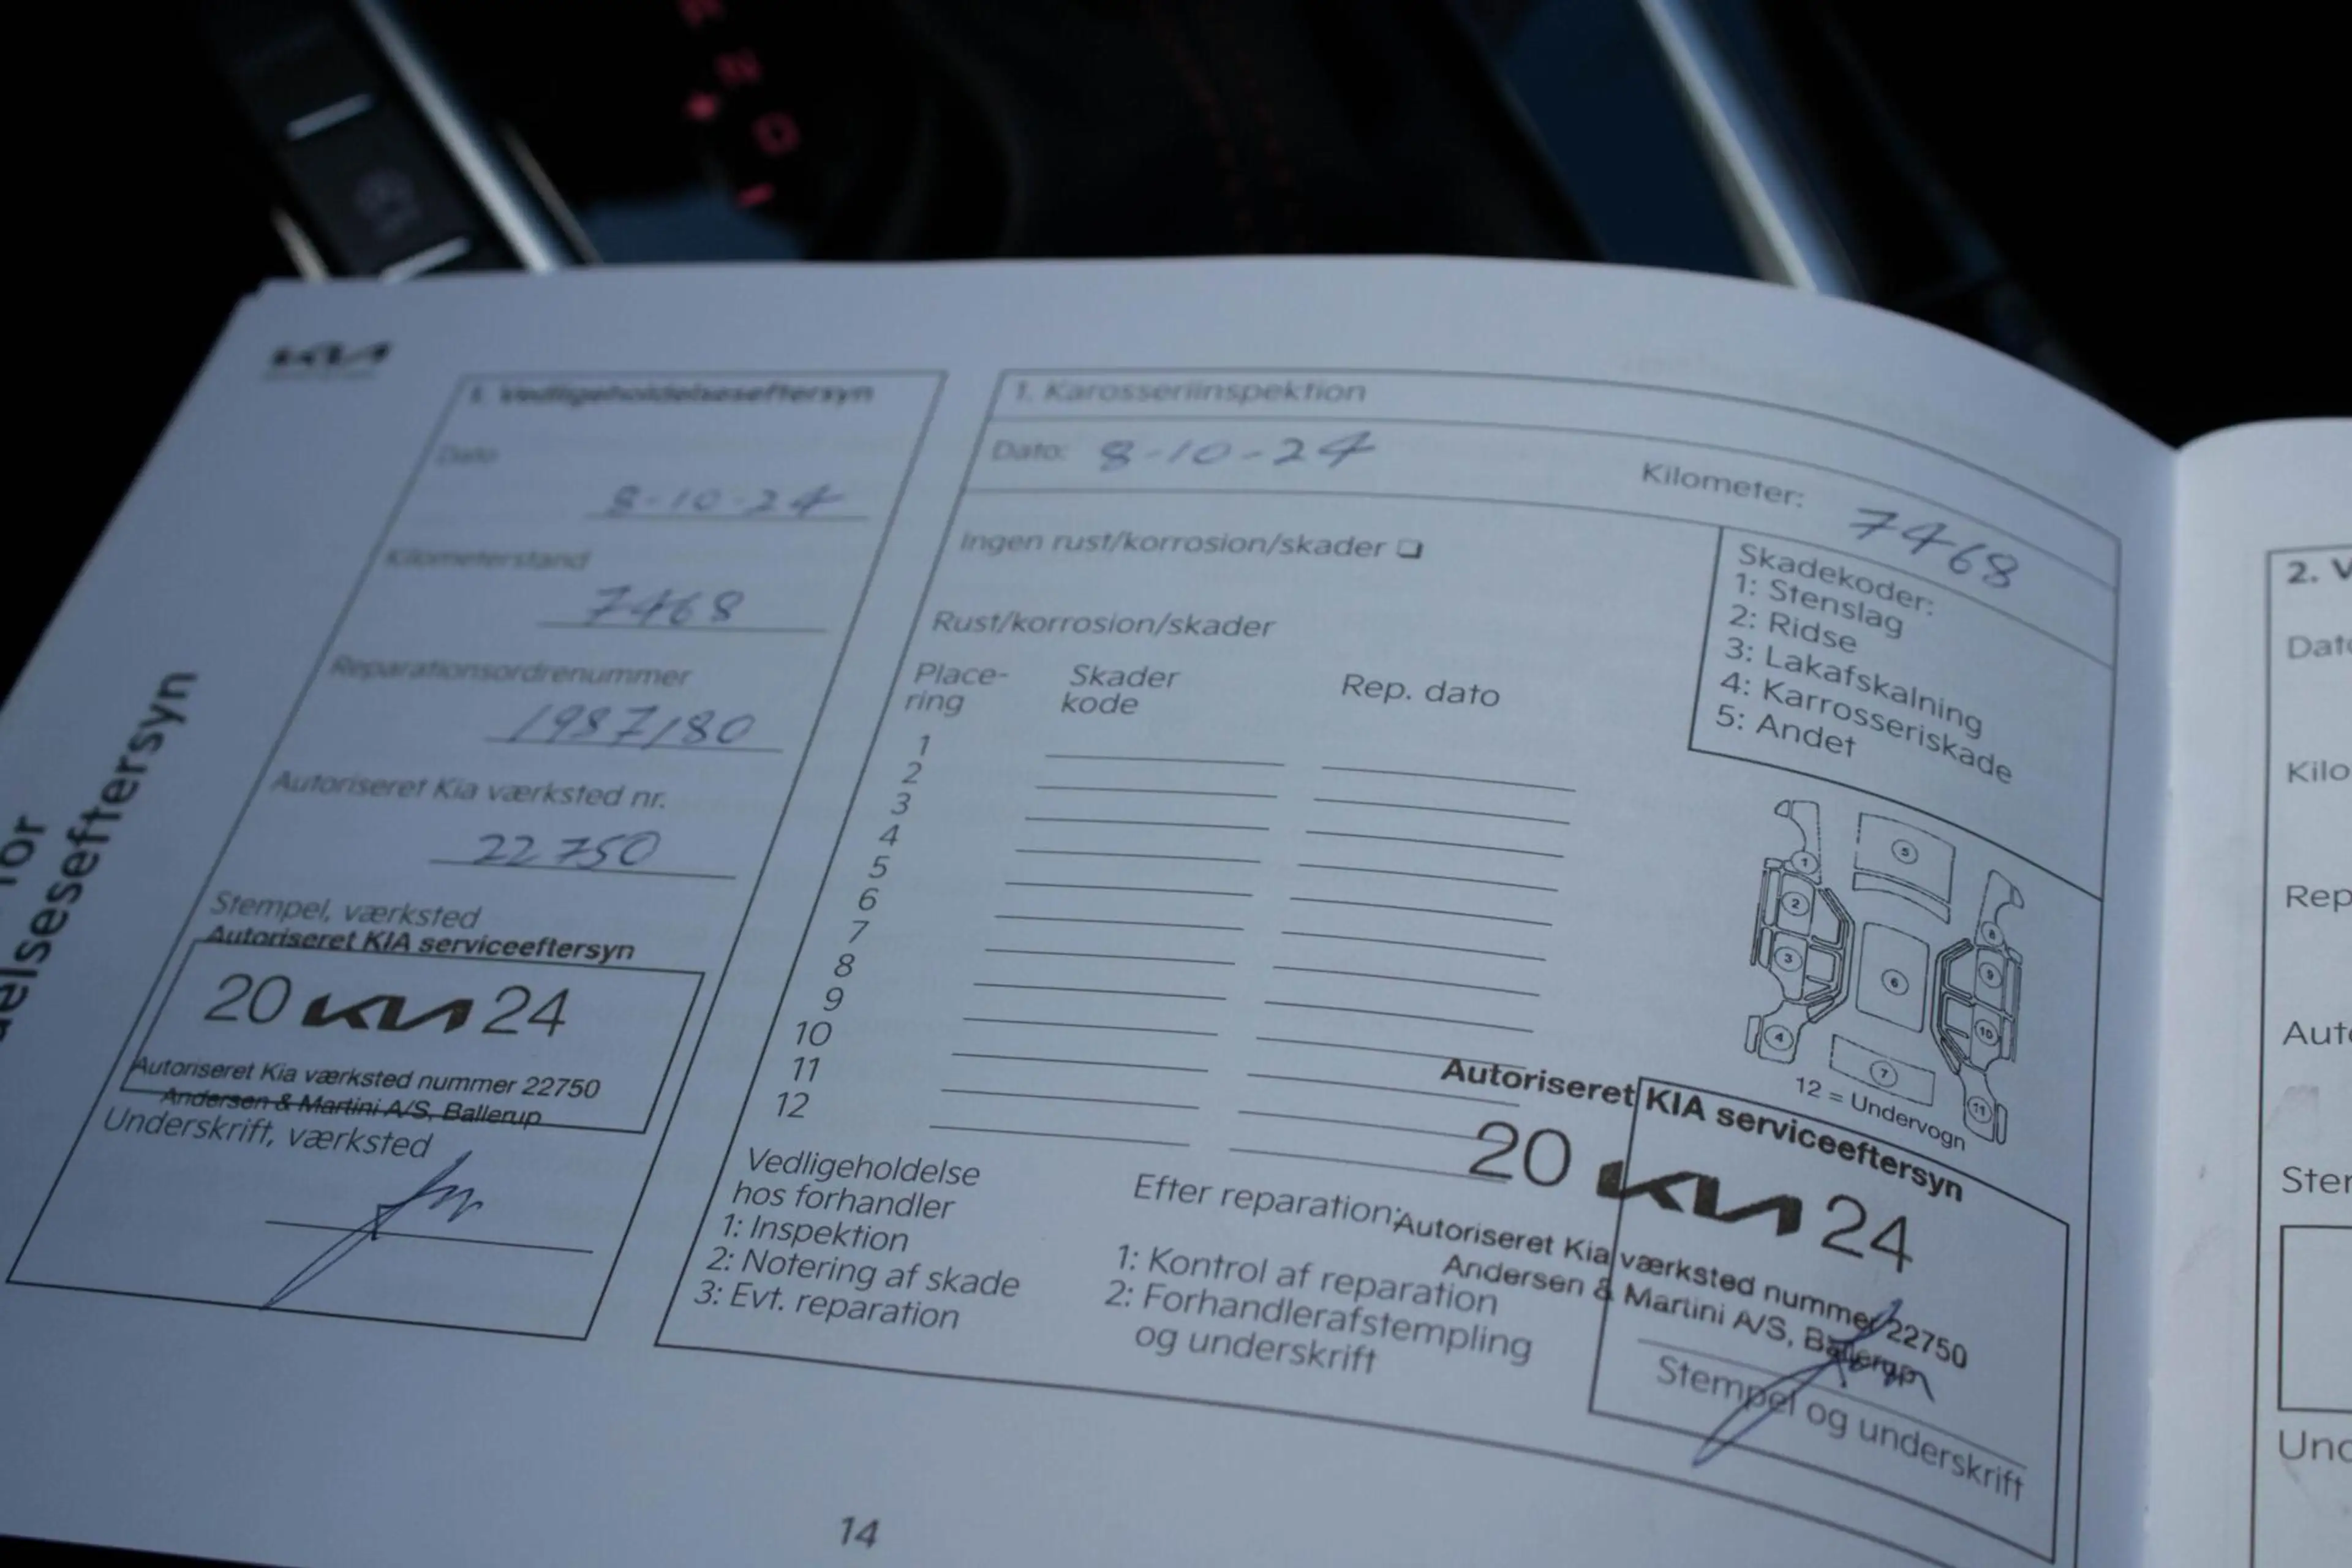 KIA
1. Vedligeholdelseseftersyn
Dato
8-10-24
Kilometerstand
7468
Reparationsordrenummer
1987180
Autoriseret Kia værksted nr.
22750
Stempel, værksted
Autoriseret KIA serviceeftersyn
20 KIA 24
Autoriseret Kia værksted nummer 22750
Andersen & Martini A/S, Ballerup
Underskrift, værksted
1. Karosseriinspektion
Dato: 8-10-24 Kilometer: 7468
Ingen rust/korrosion/skader
Rust/korrosion/skader
Place-
ring
Skader
kode
Rep. dato
1
2
3
4
5
6
7
8
9
10
11
12
Skadekoder:
1: Stenslag
2: Ridse
3: Lakafskalning
4: Karrosseriskade
5: Andet
1
2
3
4
5
6
7
8
9
10
11
12 = Undervogn
Vedligeholdelse
hos forhandler
1: Inspektion
2: Notering af skade
3: Evt. reparation
Efter reparation:
1: Kontrol af reparation
2: Forhandlerafstempling
og underskrift
Autoriseret KIA serviceeftersyn
20 KIA 24
Autoriseret Kia værksted nummer 22750
Andersen & Martini A/S, Ballerup
Stempel og underskrift
14
2. V
Dato
Kilo
Rep
Auto
Stem
Und